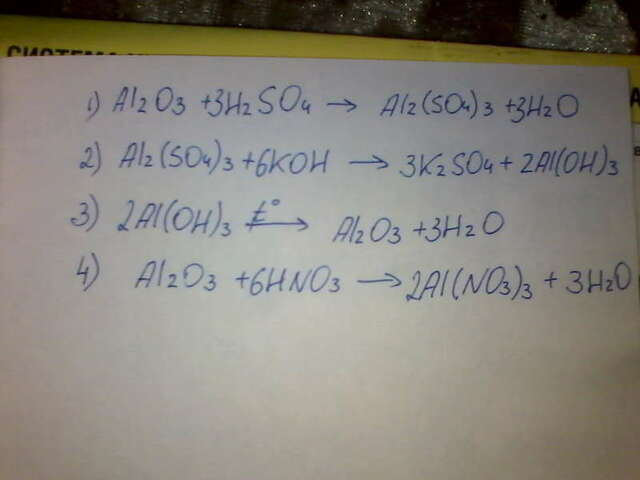 СИСТЕМА
1) Al2O3 + 3H2SO4 → Al2(SO4)3 + 3H2O
2) Al2(SO4)3 + 6KOH → 3K2SO4 + 2Al(OH)3
3) 2Al(OH)3 t° → Al2O3 + 3H2O
4) Al2O3 + 6HNO3 → 2Al(NO3)3 + 3H2O